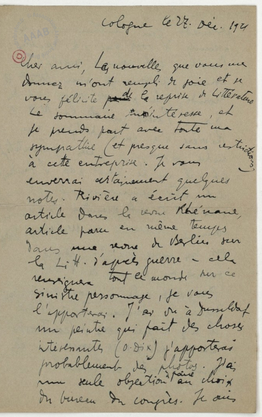 Cologne le 27. Déc. 1921
Cher ami, La nouvelle que vous me
donnez m'ont rempli de joie et je
vous félicite de la reprise de Littérature
Le sommaire m'intéresse, et
je prends part avec toute ma
sympathie (et presque sans restrictions)
à cette entreprise. Je vous
enverrai certainement quelques
notes. Rivière a écrit un
article dans la revue Rhénane,
article paru en même temps
dans une revue de Berlin sur
la Litt. d'après guerre - cela
renseignera tout le monde sur ce
sinistre personnage, je vous
l'apporterai. J'ai vu à Dusseldorf
un peintre qui fait des choses
intéressantes (O. Dix) j'apporterai
probablement des photos. J'ai
une seule objection à faire au choix
du bureau du congrès. Je